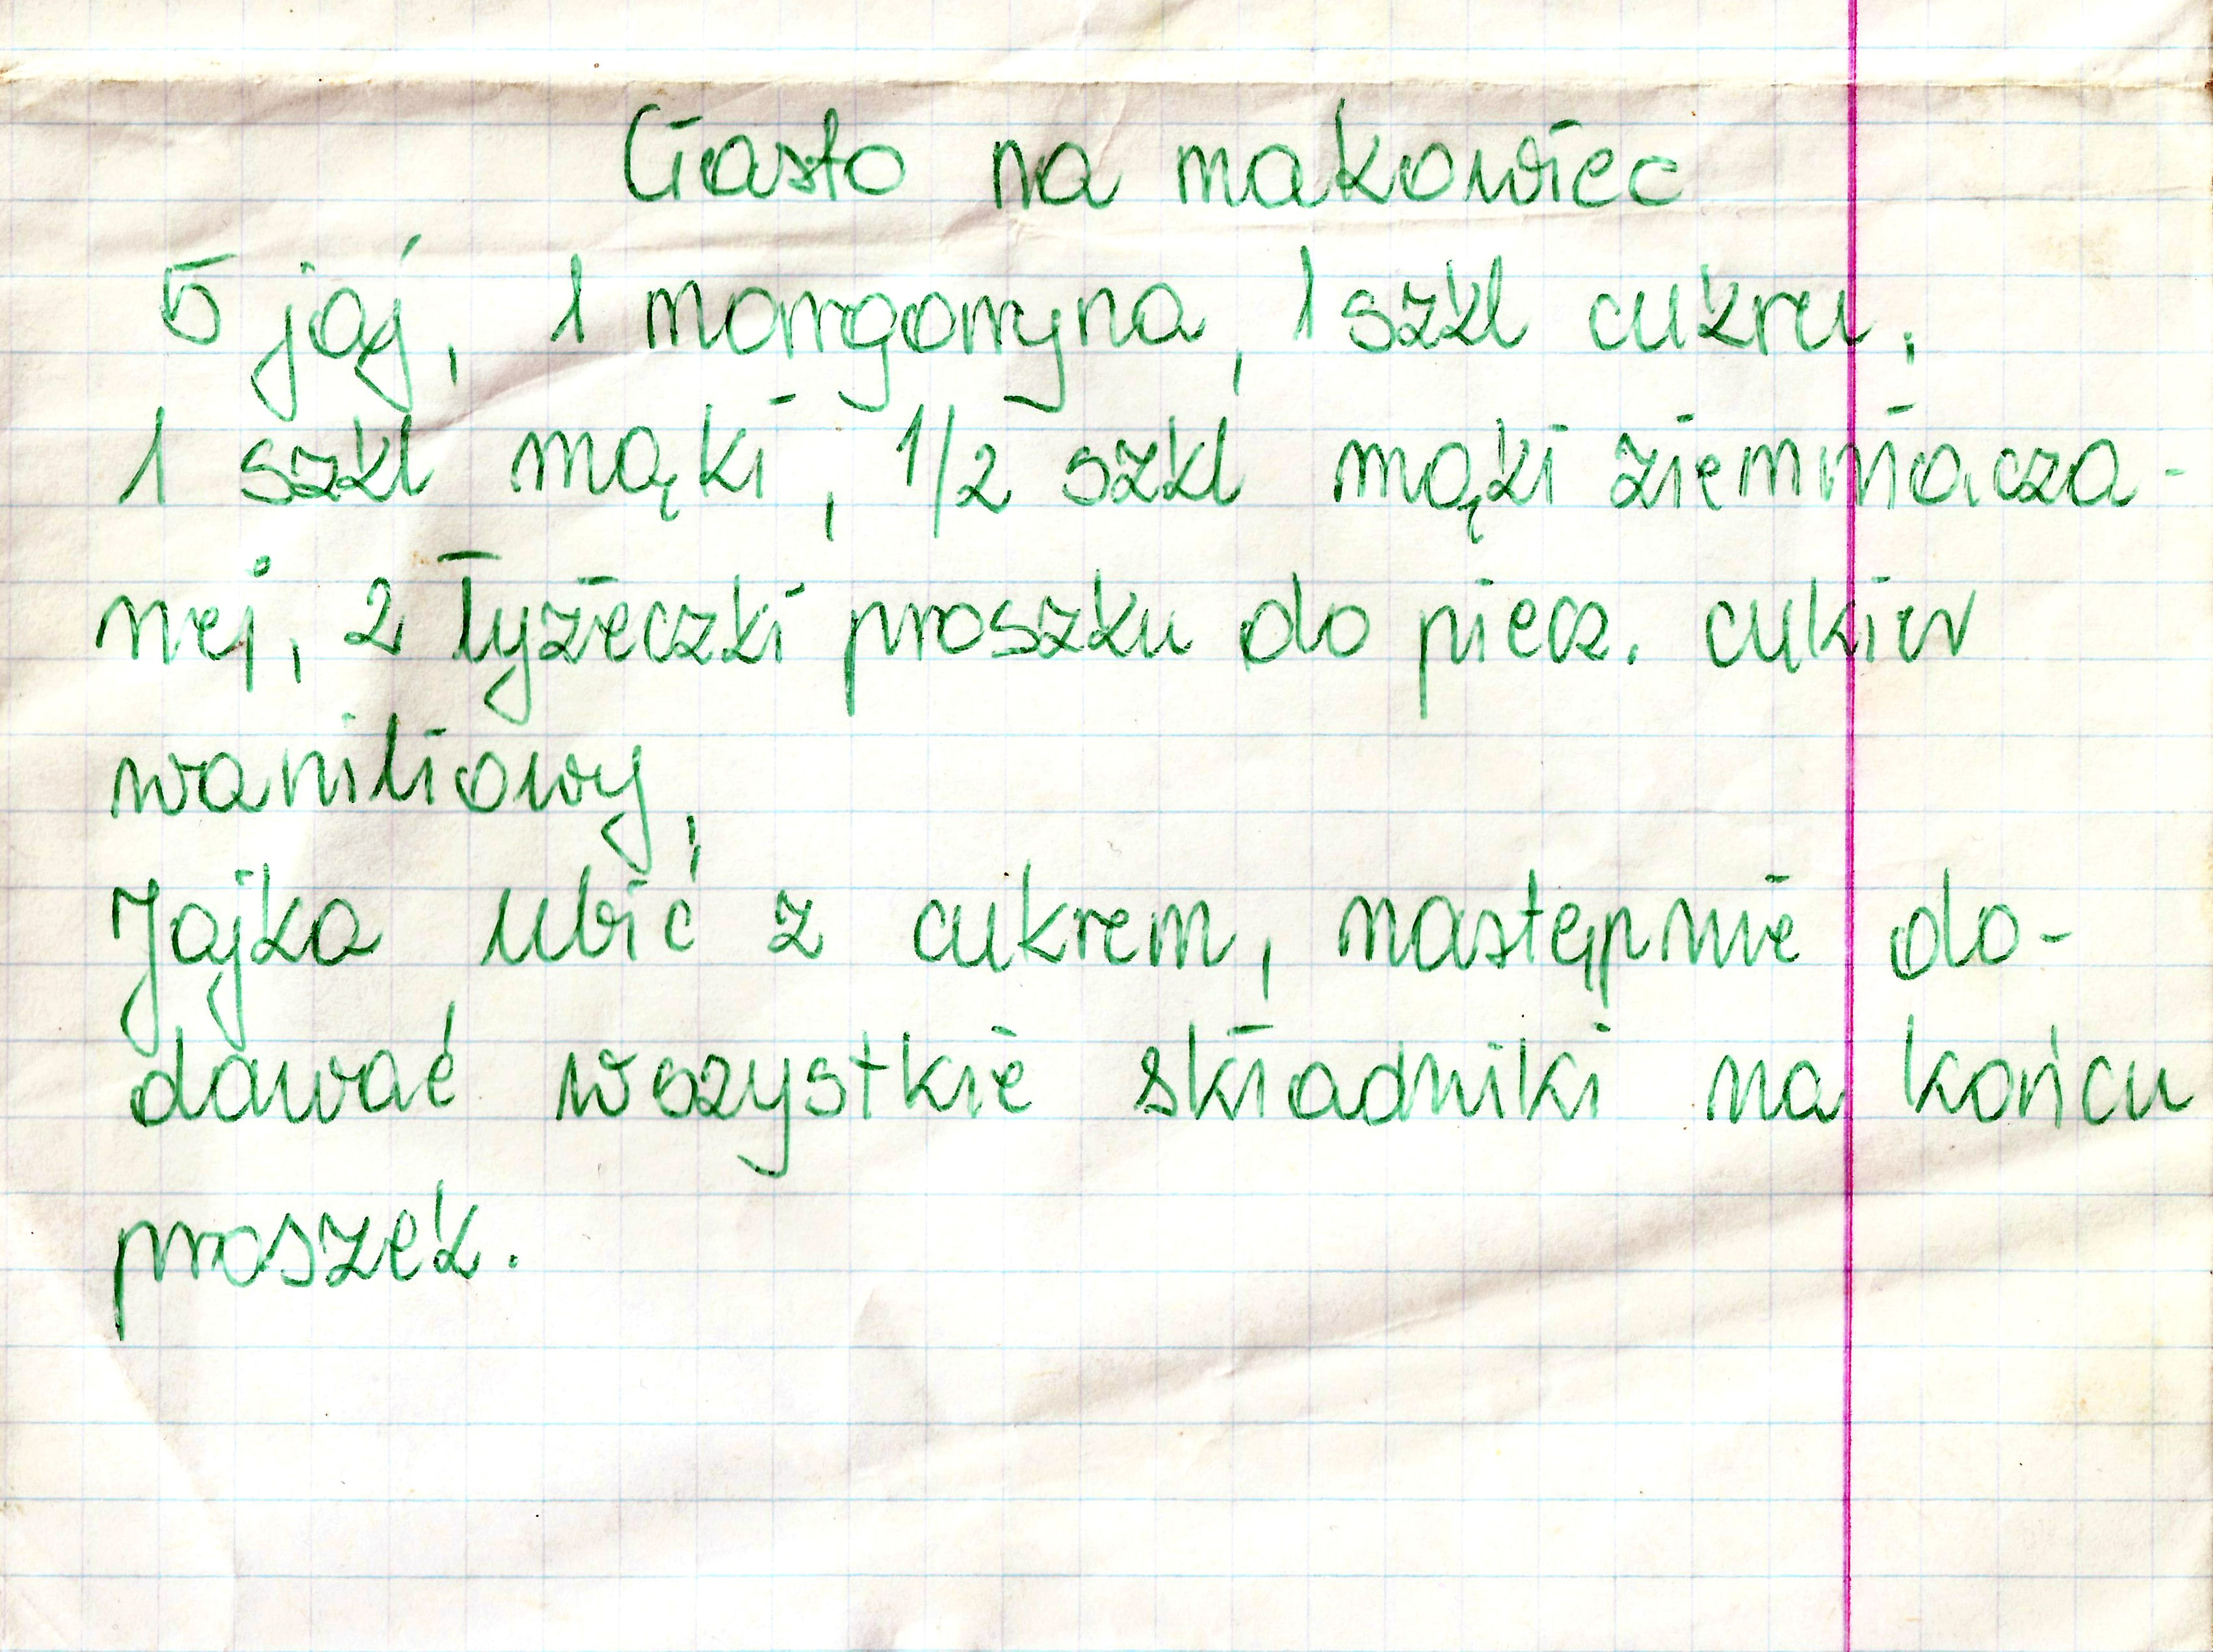 Ciasto na makowiec
5 jaj, 1 margaryna, 1 szkl cukru,
1 szkl mąki, 1/2 szkl mąki ziemniacza-
nej, 2 łyżeczki proszku do piecz. cukier
waniliowy,
Jajka ubić z cukrem, następnie do-
dawać wszystkie składniki na końcu
proszek.